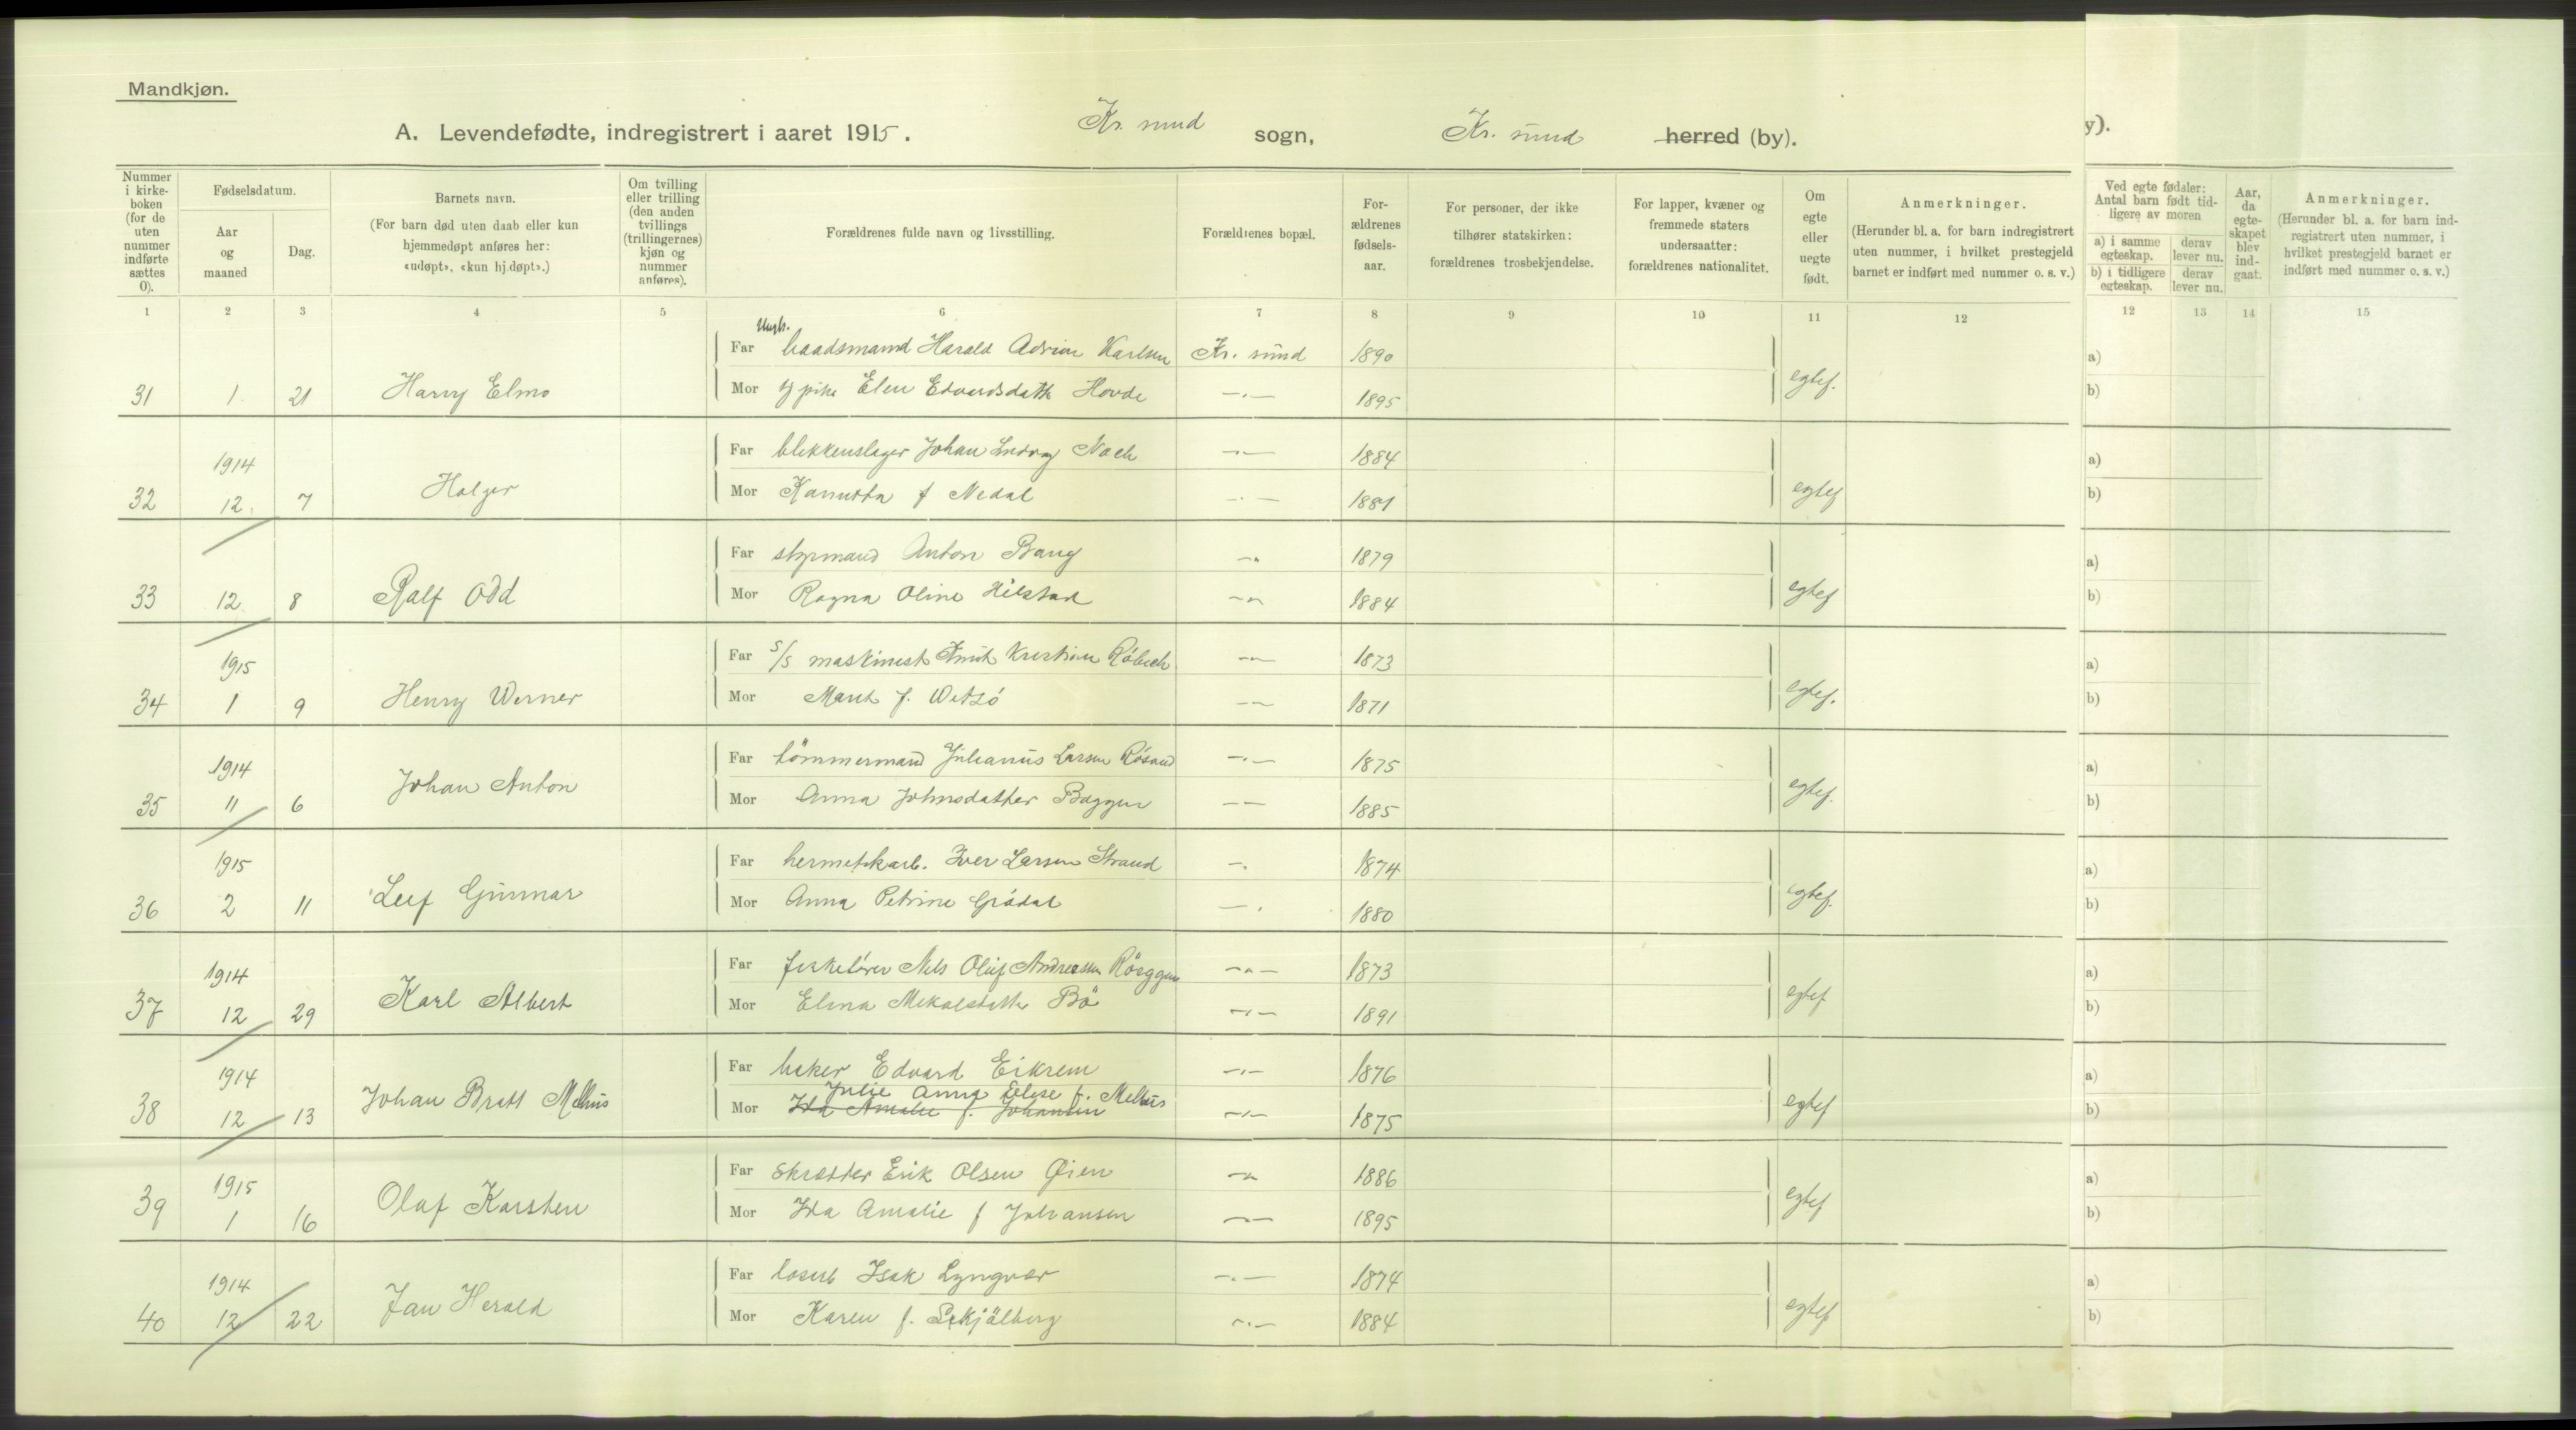 Mandkjøn.
A. Levendefødte, indregistrert i aaret 1915. Kr. sund sogn, Kr. sund herred (by).
y).
Nummer i kirke-boken (for de uten nummer indførte sættes 0).
Fødselsdatum.
Aar og maaned
Dag.
Barnets navn.
(For barn død uten daab eller kun hjemmedøpt anføres her: «udøpt», «kun hj.døpt».)
Om tvilling eller trilling (den anden tvillings (trillingernes) kjøn og nummer anføres).
Forældrenes fulde navn og livsstilling.
Forældrenes bopæl.
For-ældrenes fødsels-aar.
For personer, der ikke tilhører statskirken: forældrenes trosbekjendelse.
For lapper, kvæner og fremmede staters undersaatter: forældrenes nationalitet.
Om egte eller uegte født.
Anmerkninger.
(Herunder bl. a. for barn indregistrert uten nummer, i hvilket prestegjeld barnet er indført med nummer o. s. v.)
Ved egte fødsler: Antal barn født tid-ligere av moren
a) i samme egteskap.
derav lever nu.
b) i tidligere egteskap.
derav lever nu.
Aar, da egte-skapet blev ind-gaat.
Anmerkninger.
(Herunder bl. a. for barn ind-registrert uten nummer, i hvilket prestegjeld barnet er indført med nummer o. s. v.)
1 2 3 4 5 6 7 8 9 10 11 12 12 13 14 15
Ungk.
Far baadsmand Harald Adrian Karlsen Kr. sund 1890 a)
31 1. 21 Harry Elmo Mor pike Elen Edvardsdatt Hovde —„— 1895 egtef. b)
1914 Far blikkenslager Johan Ludvig —„— 1884 a)
32 12. 7 Holger Mor f Nedal —„— 1881 egtef b)
Far styrmand Anton Bang —„ 1879 a)
33 12. 8 Ralf Odd Mor Ragna Oline Hilstad —„ 1884 egtef b)
1915 Far S/S maskinist Knut Kristian —„— 1873 a)
34 1 9 Henry Werner Mor Marit f. —„— 1871 egtef. b)
1914 Far tömmermand Julianus Larsen Rösand —„— 1875 a)
35 11 6 Johan Anton Mor Anna Johnsdatter Baggen —„— 1885 egtef. b)
1915 Far hermetikarb. Iver Larsen Strand —„ 1874 a)
36 2 11 Leif Gunnar Mor Anna Petrine Grödal —„ 1880 egtef. b)
1914 Far Nils Oluf Andreassen Röeggen —„— 1873 a)
37 12 29 Karl Albert Mor Elina Mikalsdatt Bö —„— 1891 egtef b)
1914 Far baker Edvard Eikrem —„— 1876 a)
Julie Anna Elise f. Melhus
38 12 13 Johan Bratt Melhus Mor Ida Amalie f. Johansen —„— 1875 egtef b)
1915 Far skrædder Erik Olsen Øien —„ 1886 a)
39 1 16 Olaf Karsten Mor Ida Amalie f Johansen —„— 1895 egtef b)
1914 Far Isak Lyngvær —„— 1874 a)
40 12 22 Jan Herald Mor Karen f. —„— 1884 egtef b)